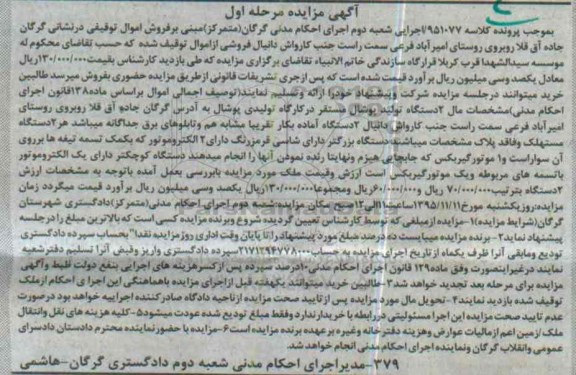 آگهی مزایده مرحله اول
بموجب پرونده کلاسه ۹۵۱۰۷۷/اجرایی شعبه دوم اجرای احکام مدنی گرگان(متمرکز)مبنی برفروش اموال توقیفی درنشانی گرگان
جاده آق قلا روبروی روستای امیرآباد فرعی سمت راست جنب کارواش دانیال فروشی ازاموال توقیف شده که حسب تقاضای محکوم له
موسسه سیدالشهدا قرب کربلا قرارگاه سازندگی خاتم الانبیاء تقاضای برگزاری مزایده که طی بازدید کارشناس بقیمت۱۳۰/۰۰۰/۰۰۰ریال
معادل یکصد وسی میلیون ریال برآورد قیمت شده است که پس ازجری تشریفات قانونی ازطریق مزایده حضوری بفروش میرسد طالبین
خرید میتوانند درجلسه مزایده شرکت وپیشنهاد خودرا ارائه وتسلیم نمایند(توصیف اجمالی اموال براساس ماده۱۳۸قانون اجرای
احکام مدنی)مشخصات مال ۲دستگاه تولید پوشال مستقر درکارگاه تولیدی پوشال به آدرس گرگان جاده آق قلا روبروی روستای
امیرآباد فرعی سمت راست جنب کارواش دانیال ۲دستگاه آماده بکار تقریبا مشابه هم وتابلوهای برق جداگانه میباشد هر۲دستگاه
مستهلک وفاقد پلاک مشخصات میباشند دستگاه بزرگتر دارای شاسی قرمزرنگ دارای۲ الکتروموتور که بکمک تسمه تیغه ها برروی
آن سواراست و۱ موتورگیربکس که جابجایی هیزم ونهایتا رنده نمودن آنها را انجام میدهند دستگاه کوچکتر دارای یک الکتروموتور
باتسمه های مربوطه ویک موتورگیربکس است ارزش وقیمت ملک مورد مزایده بابررسی بعمل آمده باتوجه به مشخصات ارزش
۲دستگاه بترتیب۷۰/۰۰۰/۰۰۰ ریال و۶۰/۰۰۰/۰۰۰ریال ومجموعا۱۳۰/۰۰۰/۰۰۰ریال یکصد وسی میلیون ریال برآورد قیمت میگردد زمان
مزایده:روزیکشنبه مورخ۱۳۹۵/۱۱/۱۱ساعت۱۱الی۱۲صبح مکان مزایده:شعبه دوم اجرای احکام مدنی(متمرکز)دادگستری شهرستان
گرگان(شرایط مزایده)۱-مزایده ازمبلغی که توسط کارشناس تعیین گردیده شروع وبرنده مزایده کسی است که بالاترین مبلغ رادرجلسه
پیشنهاد نماید۲- برنده مزایده میبایست ده درصد مبلغ مورد پیشنهادرا تا پایان وقت اداری روزمزایده نقدا"بحساب سپرده دادگستری
تودیع ومابقی آنرا ظرف یکماه ازتاریخ اجرای مزایده به حساب۲۱۷۱۲۹۴۷۷۸۰۰۰سپرده دادگستری واریز وقبض آنرا تسلیم دفترشعبه
نمایند درغیراینصورت وفق ماده۱۲۹ قانون اجرای احکام مدنی۱۰درصد سپرده پس ازکسرهزینه های اجرایی بنفع دولت ظبط وآگهی
مزایده برای مرحله بعد تجدید خواهد شد۳-طالبین خرید میتوانند یکهفته قبل ازاجرای مزایده باهماهنگی این اجرا ی احکام ازملک
توقیف شده بازدید نمایند۴-تحویل مال مورد مزایده پس ازتایید صحت مزایده ازناحیه دادگاه صادرکننده اجراییه خواهد بود درصورت
عدم تایید صحت مزایده این اجرا مسئولیتی دررابطه با خریدارندارد وفقط مبلغ تودیع شده عودت میشود۵-کلیه هزینه های نقل وانتقال
ملک/زمین اعم ازمالیات عوارض وهزینه دفترخانه وغیره برعهده برنده مزایده است۶-مزایده با حضورنماینده محترم دادستان دادسرای
عمومی وانقلاب گرگان ونماینده اجرای احکام مدنی انجام خواهدشد.
۳۷۹-مدیراجرای احکام مدنی شعبه دوم دادگستری گرگان-هاشمی